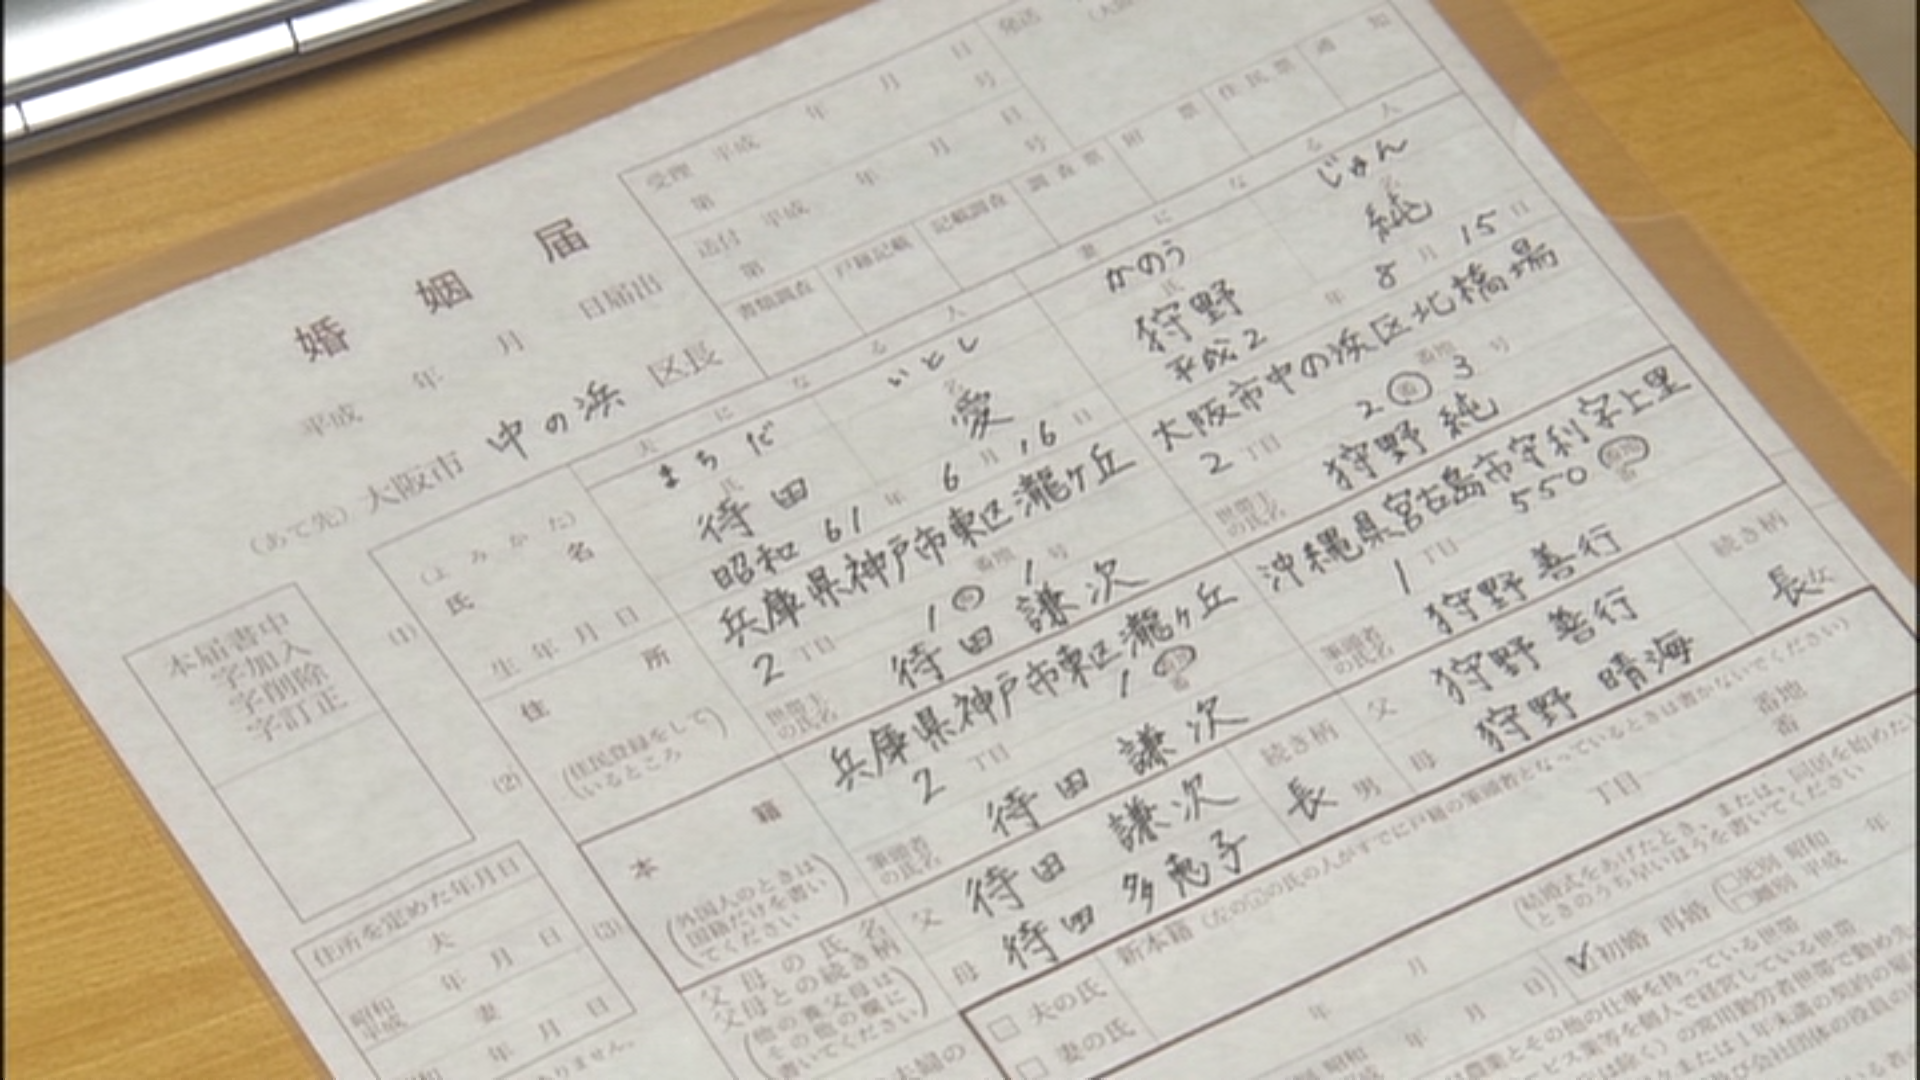 婚姻届
平成 年 月 日届出
(あて先) 大阪市 中の浜 区長
受理 平成 年 月 日
第 号
発送
送付 平成 年 月 日
第 号
書類調査 戸籍記載 記載調査 調査票 附票 住民票 通知
夫になる人
妻になる人
(よみかた)
まちだ いとし
かのう じゅん
(1)
氏名
氏 名
待田 愛
狩野 純
生年月日
昭和 61 年 6 月 16 日
平成 2 年 8 月 15 日
(2)
住所
(住民登録をしているところ)
兵庫県神戸市東区瀧ヶ丘
2 丁目 1 番 1 号
世帯主の氏名 待田 謙次
大阪市中の浜区北橋場
2 丁目 2 番 3 号
世帯主の氏名 狩野 純
(3)
本籍
(外国人のときは国籍だけを書いてください)
兵庫県神戸市東区瀧ヶ丘
2 丁目 1 番地
筆頭者の氏名 待田 謙次
沖縄県宮古島市守利字上里
1 丁目 550 番地
筆頭者の氏名 狩野 善行
父母の氏名
父母との続き柄
(他の養父母はその他の欄に書いてください)
父 待田 謙次
母 待田 多恵子
続き柄
長男
父 狩野 善行
母 狩野 晴海
続き柄
長女
本届書中
字加入
字削除
字訂正
住所を定めた年月日
夫
年 月 日
昭和
平成
妻
年 月 日
ありません。
夫婦の
□夫の氏
□妻の氏
新本籍 (左の☑の氏の人がすでに戸籍の筆頭者となっているときは書かないでください)
丁目 番地
番
年 月
(結婚式をあげたとき、または、同居を始めた
ときのうち早いほうを書いてください
初婚 再婚 (□死別 □離別 昭和 平成 年
年 月 日)